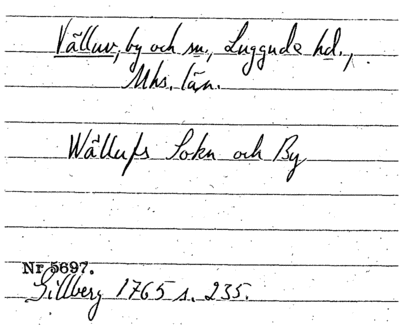 Välluv, by och sn., Luggude hd.,
Mhs. län.
Wällufs Sokn och By
Nr 5697.
Gillberg 1765 s. 235.